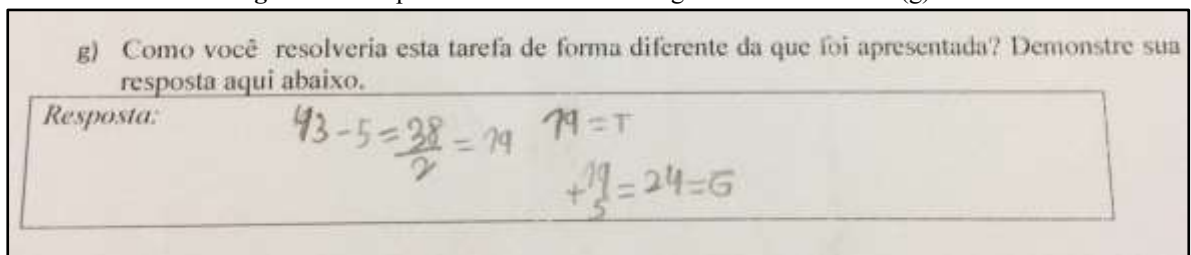 g) Como você resolveria esta tarefa de forma diferente da que foi apresentada? Demonstre sua
resposta aqui abaixo.
Resposta:
43 - 5 = 38/2 = 19 19 = T
+19/5 = 24 = G